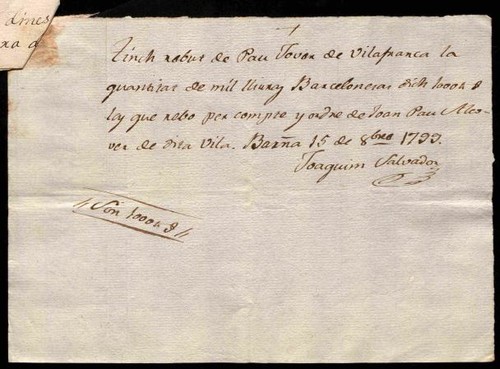 dines
+
Tinch rebut de Pau Tovar de Vilafranca la
quantitat de mil lliuras Barcelonesas dich 1000 ll
las que rebo per compte y ordre de Joan Pau Alco-
ver de dita Vila. Barña 15 de 8bre 1799.
Joaquim Salvador
Són 1000 ll